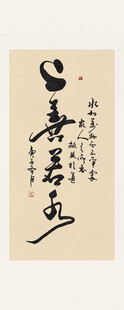 水利萬物而不爭處
眾人之所惡
故幾於道
上善若水